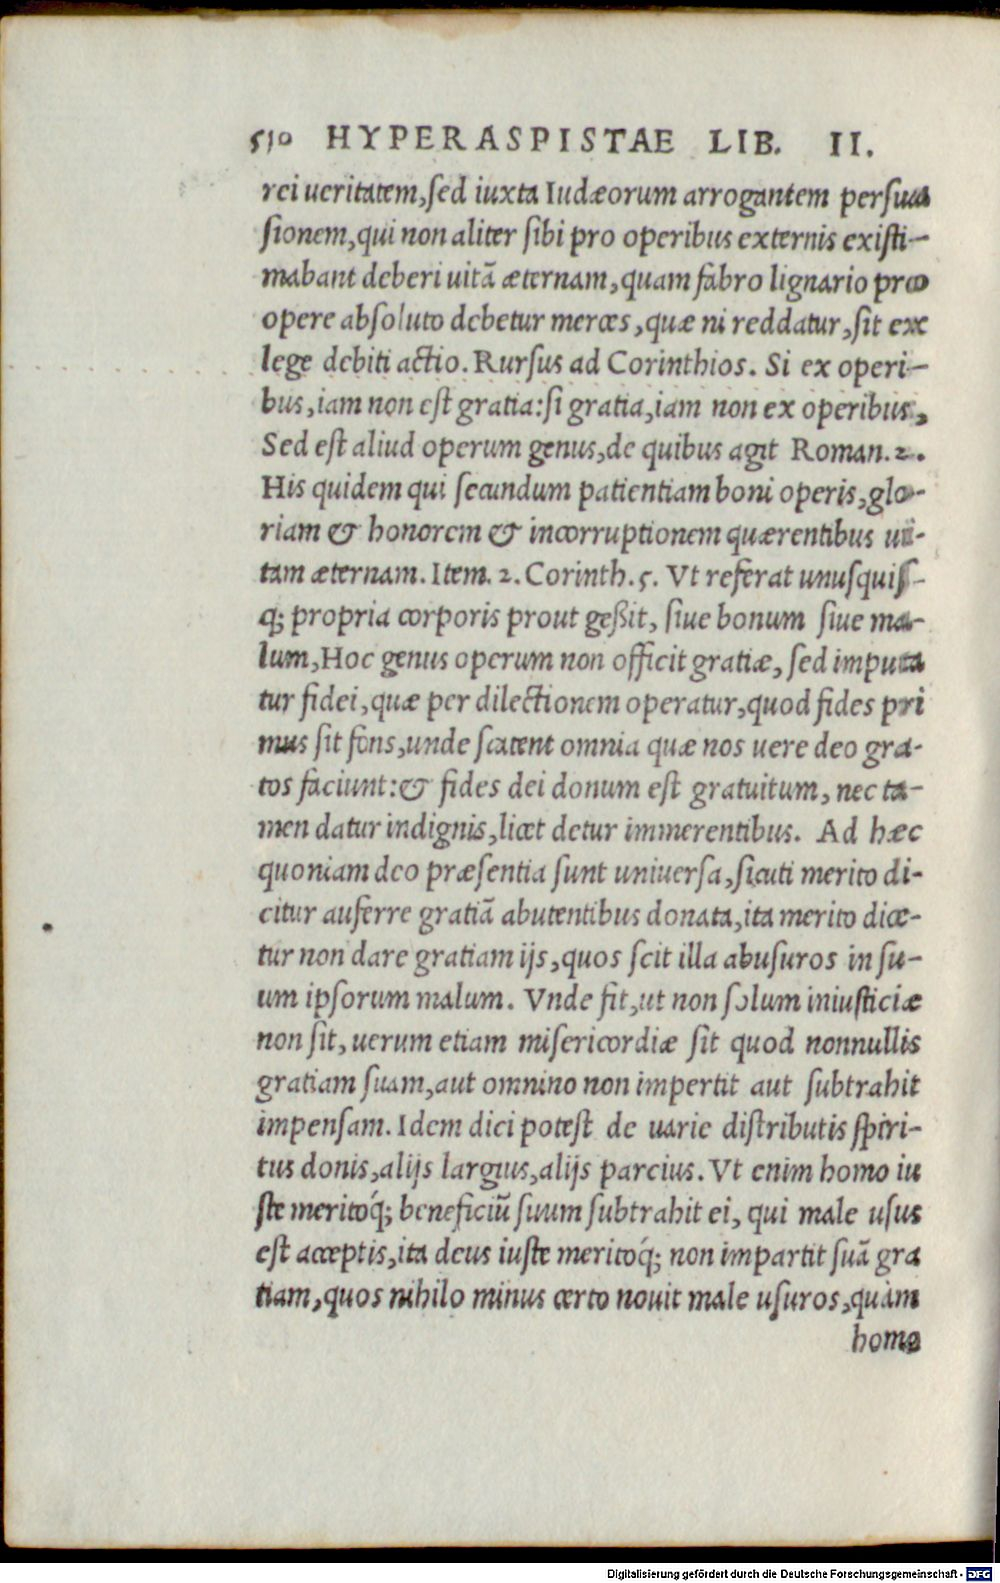 510 HYPERASPISTAE LIB. II.
rei ueritatem, sed iuxta Iudæorum arrogantem persua
sionem, qui non aliter sibi pro operibus externis existi-
mabant deberi uitã æternam, quam fabro lignario pro
opere absoluto debetur merces, quæ ni reddatur, sit ex
lege debiti actio. Rursus ad Corinthios. Si ex operi-
bus, iam non est gratia: si gratia, iam non ex operibus,
Sed est aliud operum genus, de quibus agit Roman. 2.
His quidem qui secundum patientiam boni operis, glo-
riam & honorem & incorruptionem quærentibus ui-
tam æternam. Item. 2. Corinth. 5. Vt referat unusquis-
q; propria corporis prout geßit, siue bonum siue ma-
lum, Hoc genus operum non officit gratiæ, sed imputa
tur fidei, quæ per dilectionem operatur, quod fides pri
mus sit fons, unde scatent omnia quæ nos uere deo gra-
tos faciunt: & fides dei donum est gratuitum, nec ta-
men datur indignis, licet detur immerentibus. Ad hæc
quoniam deo præsentia sunt uniuersa, sicuti merito di-
citur auferre gratiã abutentibus donata, ita merito dice-
tur non dare gratiam ijs, quos scit illa abusuros in su-
um ipsorum malum. Vnde fit, ut non solum iniusticiæ
non sit, uerum etiam misericordiæ sit quod nonnullis
gratiam suam, aut omnino non impertit aut subtrahit
impensam. Idem dici potest de uarie distributis spiri-
tus donis, alijs largius, alijs parcius. Vt enim homo iu
ste meritoq́; beneficiũ suum subtrahit ei, qui male usus
est acceptis, ita deus iuste meritoq́; non impartit suã gra
tiam, quos nihilo minus certo nouit male usuros, quàm
homo
Digitalisierung gefördert durch die Deutsche Forschungsgemeinschaft - DFG